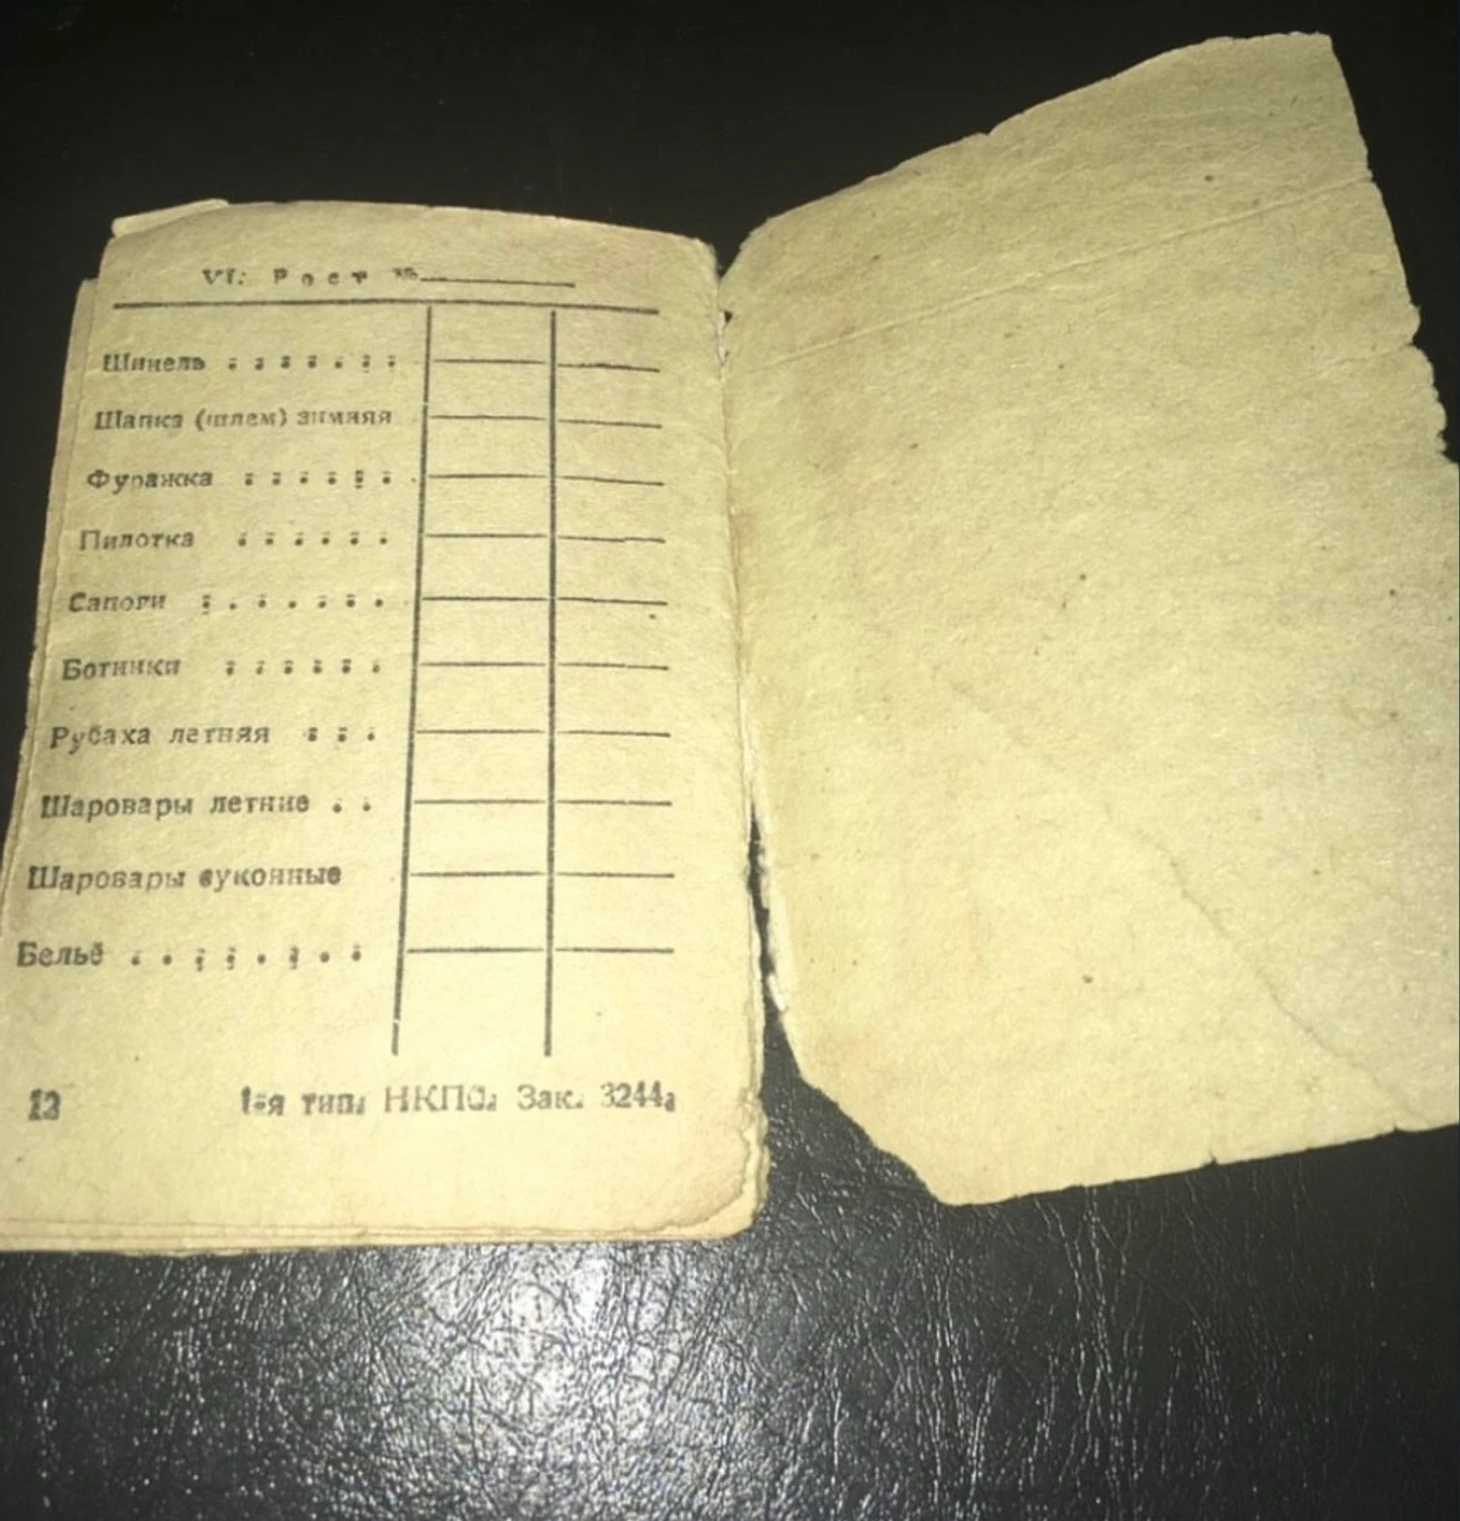 VI. Рост №
Шинель . . . . . . .
Шапка (шлем) зимняя
Фуражка . . . . . . .
Пилотка . . . . . .
Сапоги . . . . . . .
Ботинки . . . . . .
Рубаха летняя . . .
Шаровары летние . .
Шаровары суконные
Бельё . . . . . . . .
12 1-я тип. НКПС. Зак. 3244.